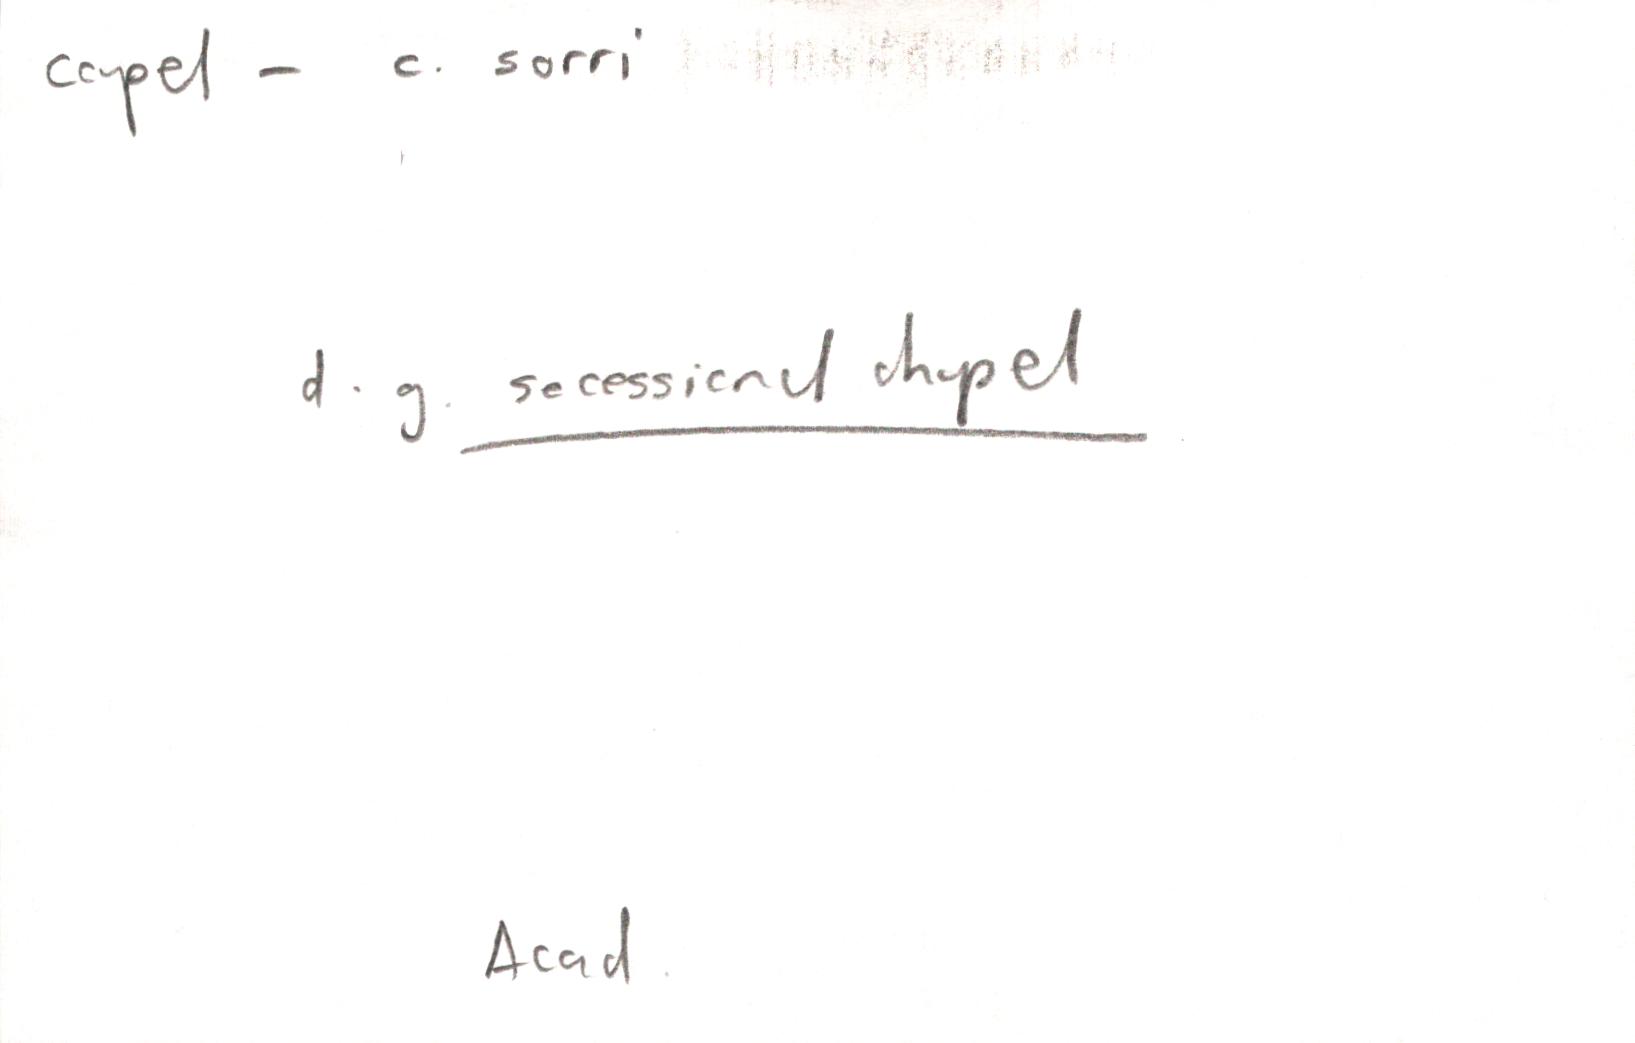 capel - c. sorri
d. g. secessional chapel
Acad.